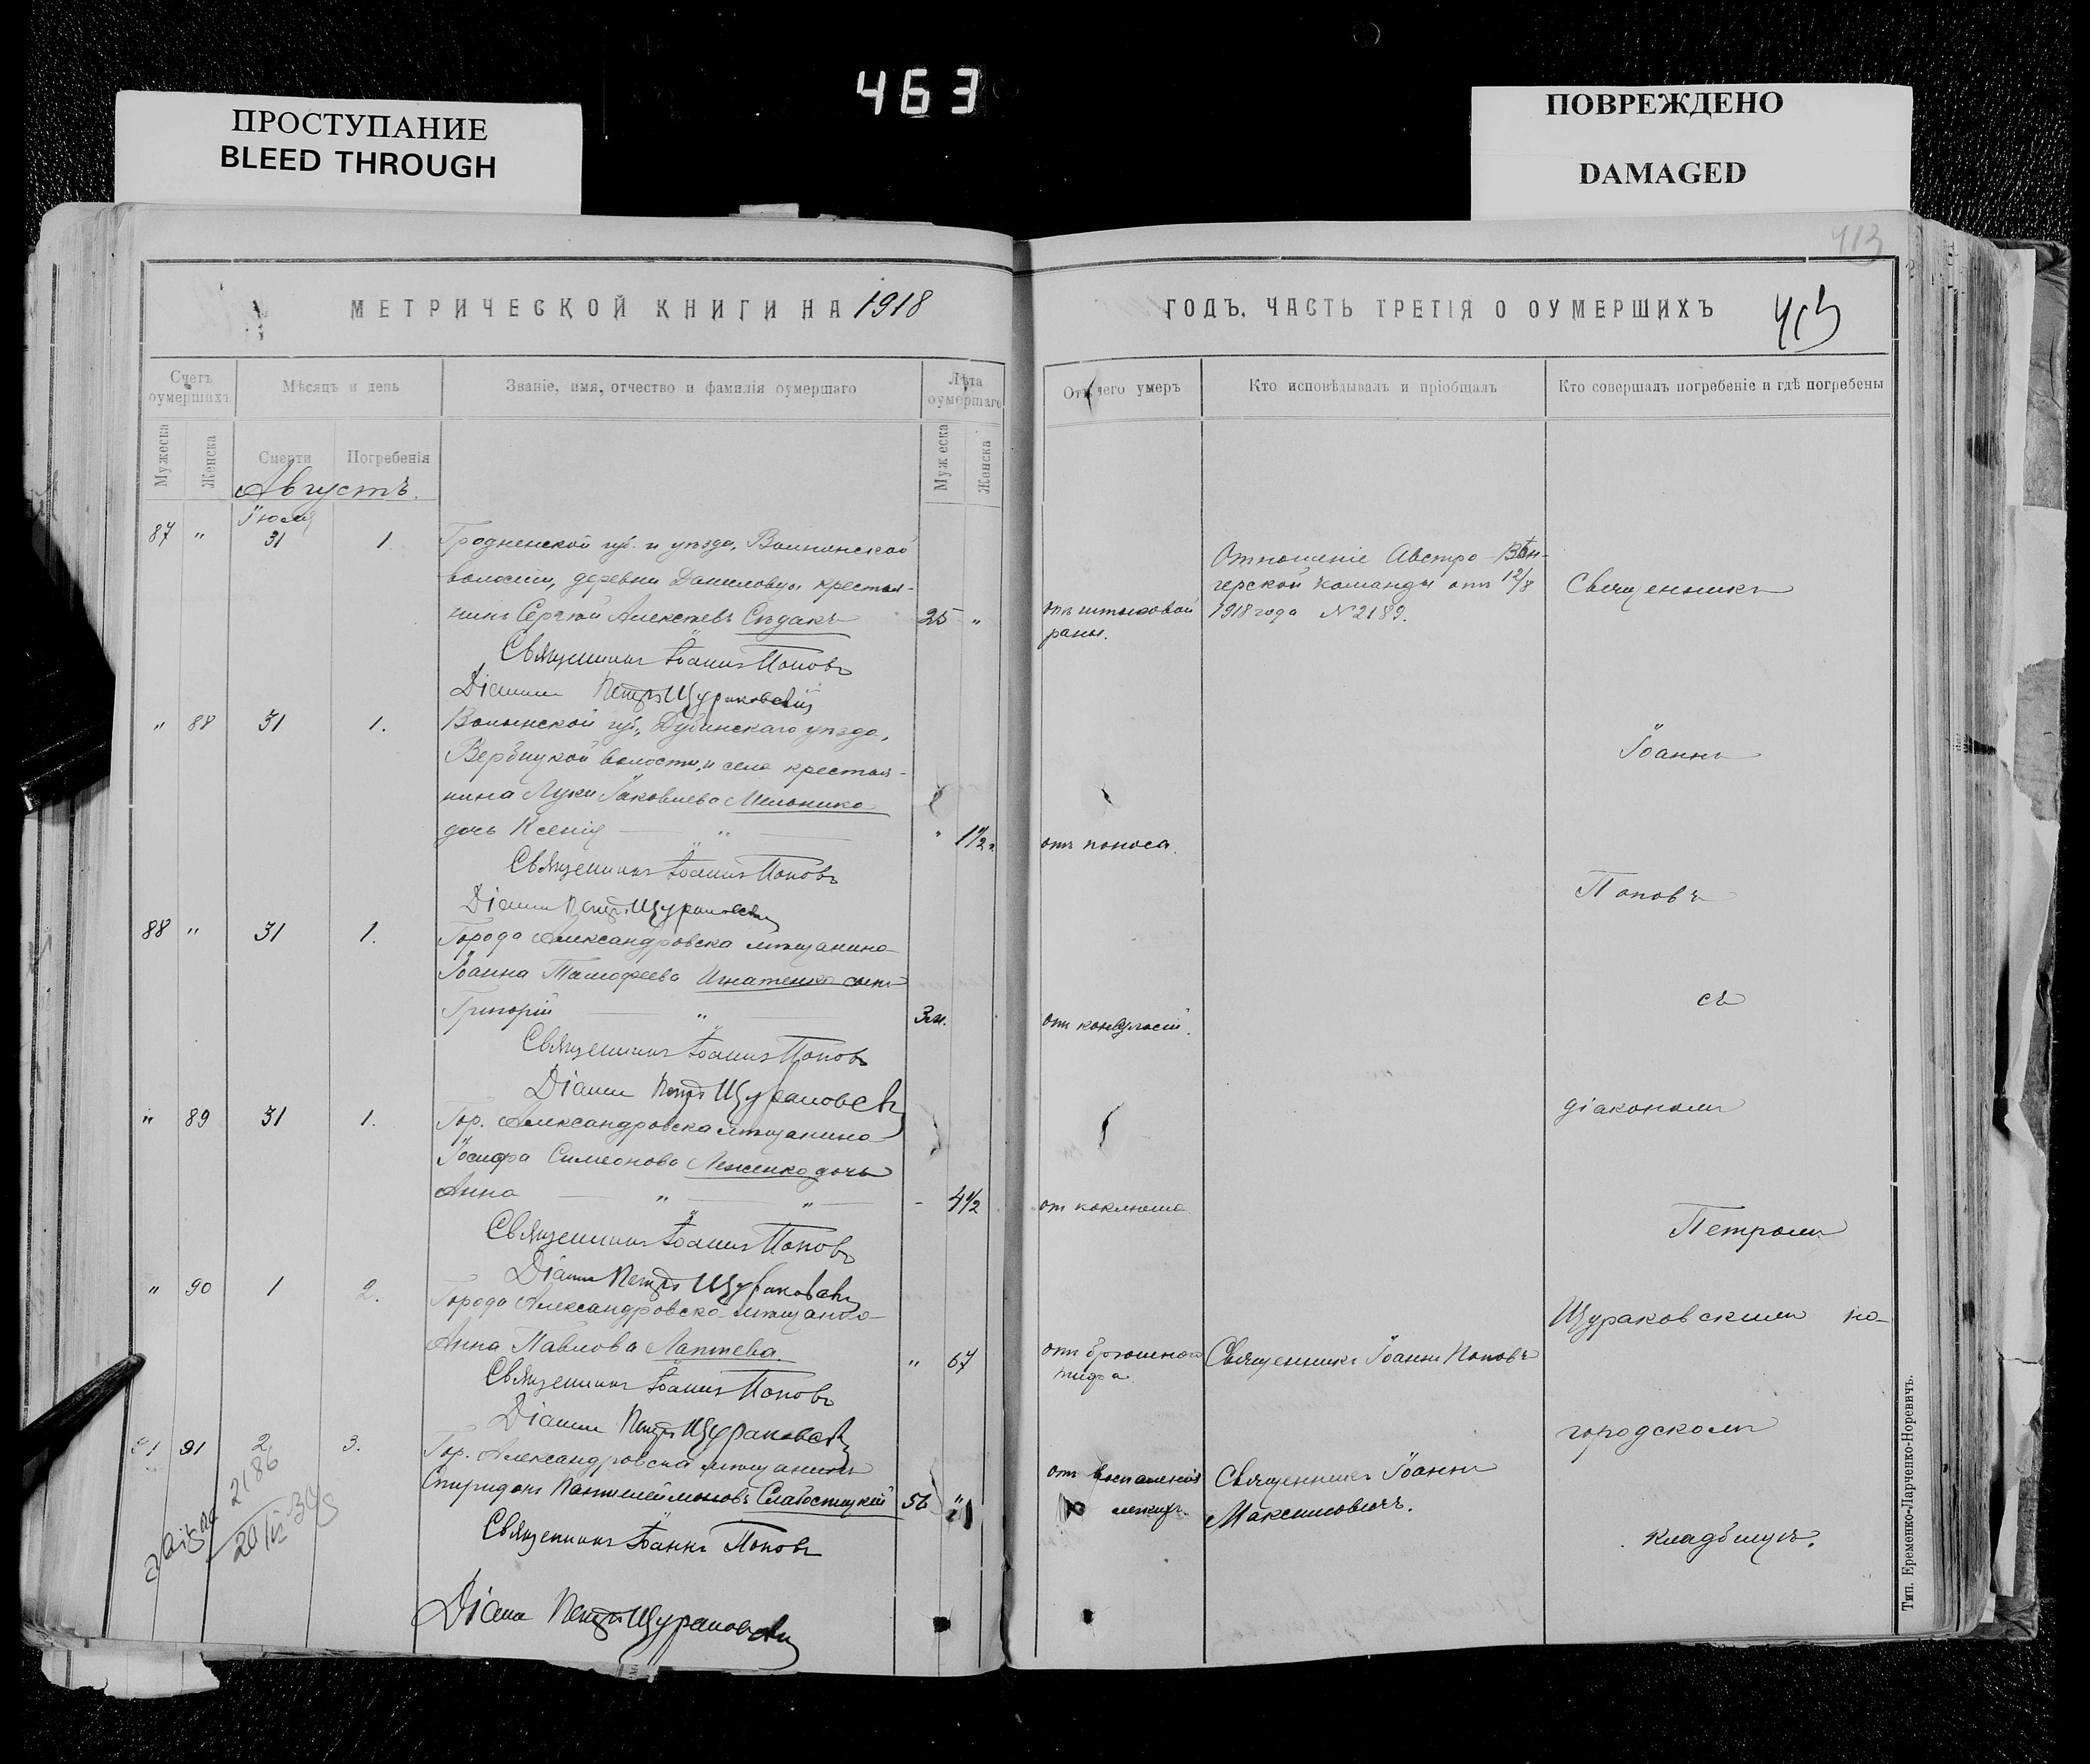 463
ПРОСТУПАНИЕ
BLEED THROUGH
ПОВРЕЖДЕНО
DAMAGED
413
МЕТРИЧЕСКОЙ КНИГИ НА 1918
ГОДЪ, ЧАСТЬ ТРЕТІЯ О ОУМЕРШИХЪ
413
Счетъ оумершихъ
Мѣсяцъ и день
Званіе, имя, отчество и фамилія оумершаго
Лѣта оумершаго
Отъ чего умеръ
Кто исповѣдывалъ и пріобщалъ
Кто совершалъ погребеніе и гдѣ погребены
Мужеска
Женска
Смерти
Погребенія
Мужеска
Женска
Августъ.
Іюля
87 " 31 1.
Гродненской губ. и уѣзда, Волпинской
волости, деревни Даниловцы крестья-
нинъ Сергѣй Алексѣевъ Сѣдакъ
25 "
отъ штыковой
раны.
Отношеніе Австро-Вен-
герской команды отъ 12/8
1918 года № 2189.
Священникъ
Священникъ Іоаннъ Поповъ
Діаконъ Петръ Щураковскій
" 88 31 1.
Волынской губ., Дубенскаго уѣзда,
Вербицкой волости, и села крестья-
нина Луки Іаковлева Мельника
дочь Ксенія "
" 1 1/2 г.
отъ поноса.
Іоаннъ
Священникъ Іоаннъ Поповъ
Діаконъ Петръ Щураковскій
Поповъ
88 " 31 1.
Города Александровска мѣщанина
Іоанна Тимофеева Игнатенко сынъ
Григорій "
3 м.
отъ конвульсій.
съ
Священникъ Іоаннъ Поповъ
Діаконъ Петръ Щураковскій
" 89 31 1.
Гор. Александровска мѣщанина
Іосифа Симеонова Леженко дочь
Анна " "
- 4 1/2
отъ коклюша
діакономъ
Священникъ Іоаннъ Поповъ
Діаконъ Петръ Щураковскій
Петромъ
" 90 1 2.
Города Александровска мѣщанка
Анна Павлова Лаптева.
" 67
отъ брюшного
тифа.
Священникъ Іоаннъ Поповъ
Щураковскимъ на
Священникъ Іоаннъ Поповъ
Діаконъ Петръ Щураковскій
городскомъ
91 2 3.
Гор. Александровска мѣщанинъ
Спиридонъ Пантелеймоновъ Слабостицкій
56 "
отъ воспаленія
легкихъ.
Священникъ Іоаннъ
Максимовичъ.
кладбищѣ.
2186
Священникъ Іоаннъ Поповъ
Діаконъ Петръ Щураковскій
Тип. Еременко-Ларченко-Норевичъ.